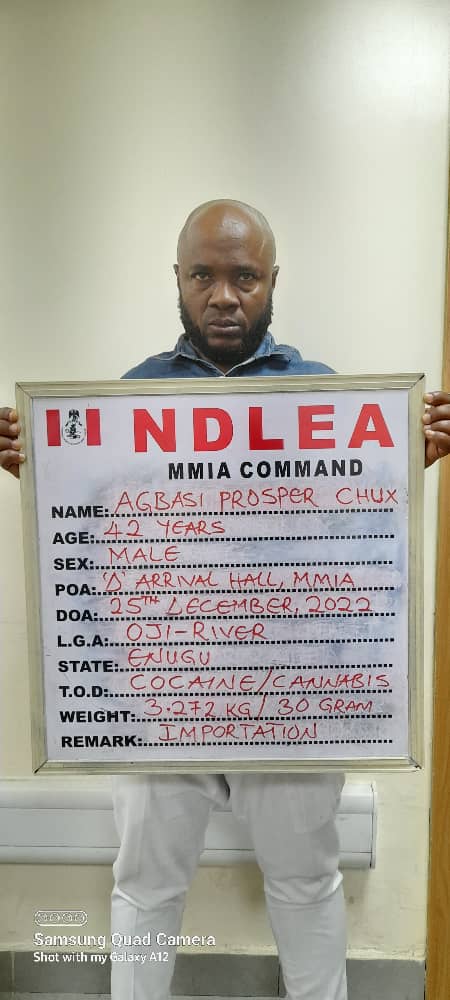 NDLEA
MMIA COMMAND
NAME: AGBASI PROSPER CHUX
AGE: 42 YEARS
SEX: MALE
POA: 'D' ARRIVAL HALL, MMIA
DOA: 25TH DECEMBER, 2022
L.G.A: OJI-RIVER
STATE: ENUGU
T.O.D: COCAINE/CANNABIS
WEIGHT: 3.272 KG/ 30 GRAM
REMARK: IMPORTATION
Samsung Quad Camera
Shot with my Galaxy A12